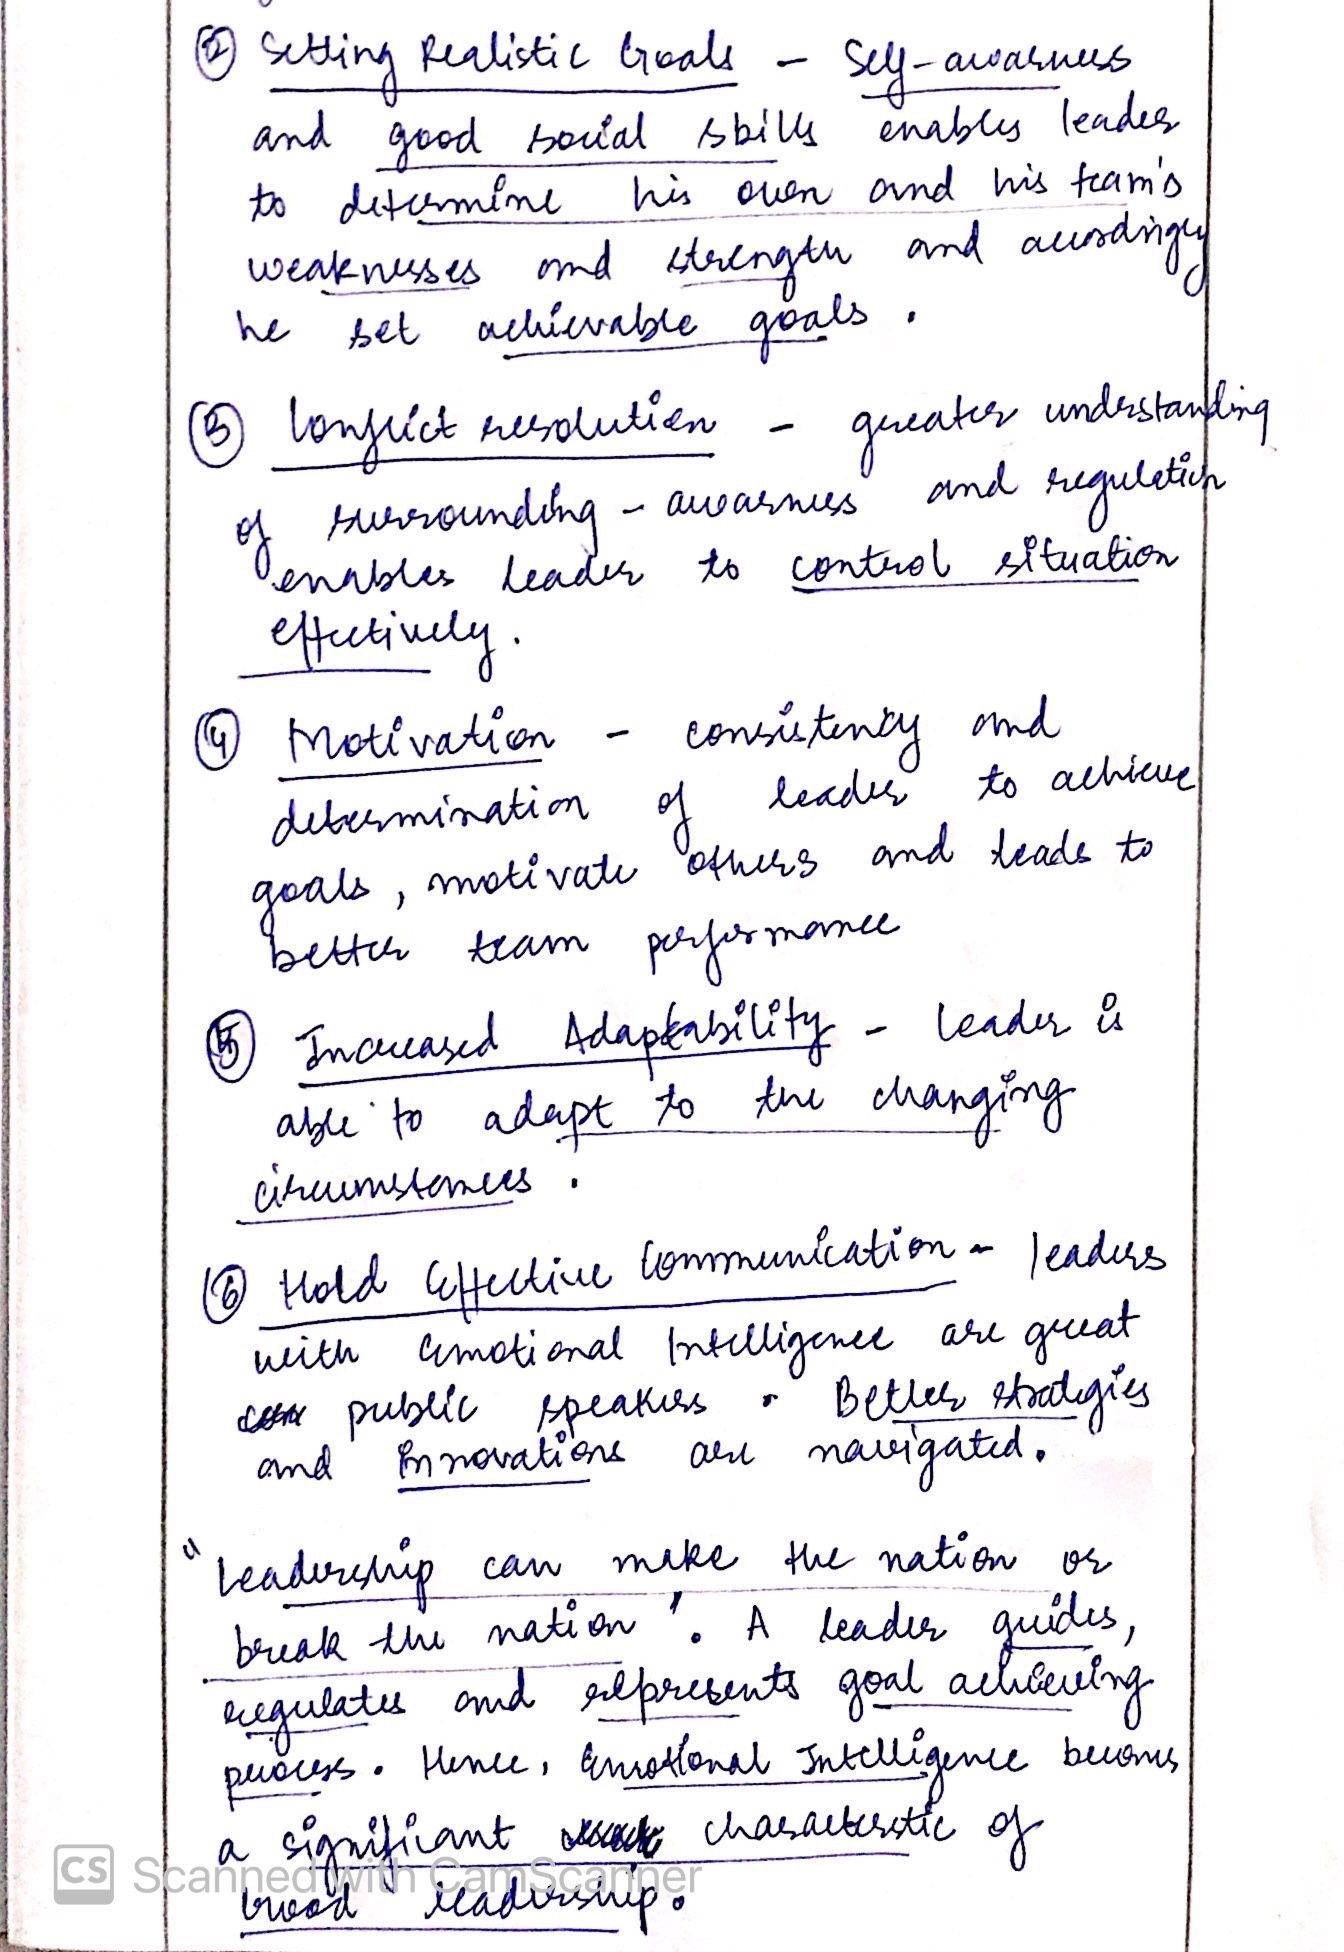 ② Setting Realistic Goals - Self-awarness
and good social skills enables leader
to determine his own and his team's
weaknesses and strength and accordingly
he set achievable goals.
③ Conflict resolution - greater understanding
of surrounding - awarness and regulation
enables leader to control situation
effectively.
④ Motivation - consistency and
determination of leader to achieve
goals, motivate others and leads to
better team performance
⑤ Increased Adaptability - leader is
able to adapt to the changing
circumstances.
⑥ Hold Effective Communication - leaders
with Emotional Intelligence are great
public speakers. Better stratgies
and Innovations are navigated.
"Leadership can make the nation or
break the nation". A leader guides,
regulates and represents goal achieving
process. Hence, Emotional Intelligence becomes
a significant characterstic of
Good leadership.
CS Scanned with CamScanner